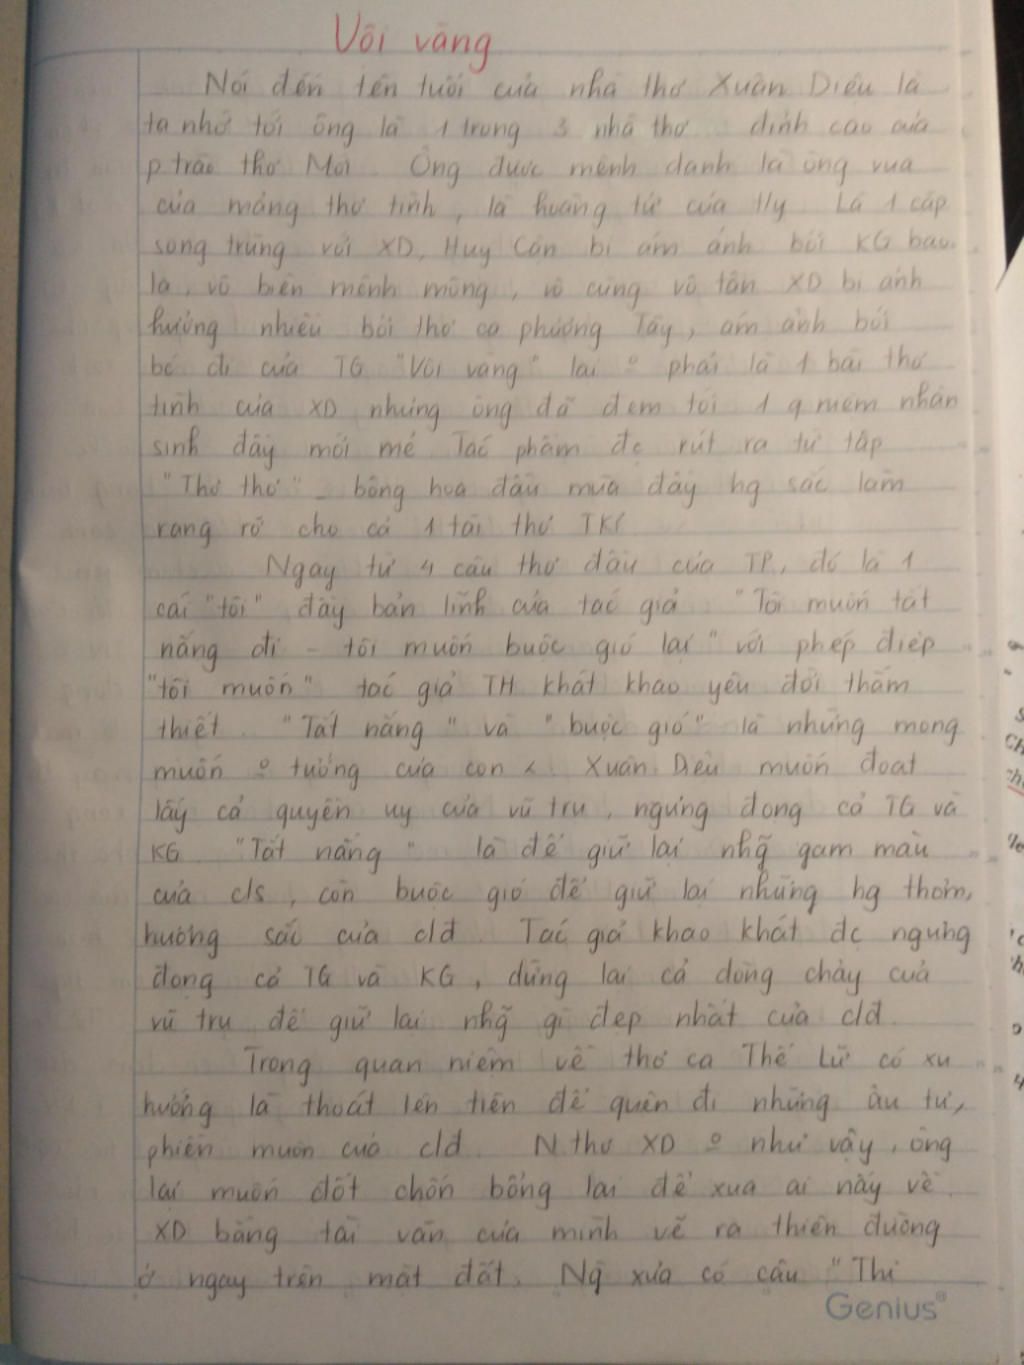 Vội vàng
Nói đến tên tuổi của nhà thơ Xuân Diệu là
ta nhớ tới ông là 1 trong 3 nhà thơ đỉnh cao của
p trào thơ Mới. Ông được mệnh danh là ông vua
của mảng thơ tình, là hoàng tử của t/y. Là 1 cặp
song trùng với XD, Huy Cận bị ám ảnh bởi KG bao
la, vô biên mênh mông, vô cùng vô tận XD bị ảnh
hưởng nhiều bởi thơ ca phương Tây, ám ảnh bởi
bc đi của TG "Vội vàng" lại o phải là 1 bài thơ
tình của XD nhưng ông đã đem tới 1 q niệm nhân
sinh đầy mới mẻ Tác phẩm đc rút ra từ tập
"Thơ thơ" - bông hoa đầu mùa đầy hg sắc làm
rạng rỡ cho cả 1 tài thơ TK
Ngay từ 4 câu thơ đầu của TP, đó là 1
cái "tôi" đầy bản lĩnh của tác giả "Tôi muốn tắt
nắng đi - tôi muốn buộc gió lại" với phép điệp
"tôi muốn" tác giả TH khát khao yêu đời thắm
thiết. "Tắt nắng" và "buộc gió" là những mong
muốn o tưởng của con <. Xuân Diệu muốn đoạt
lấy cả quyền uy của vũ trụ, ngưng đọng cả TG và
KG. "Tắt nắng" là để giữ lại nhg̃ gam màu
của c/s, còn buộc gió để giữ lại những hg thơm,
hương sắc của c/đ. Tác giả khao khát đc ngưng
đọng cả TG và KG, dừng lại cả dòng chảy của
vũ trụ để giữ lại nhg̃ gì đẹp nhất của c/đ.
Trong quan niệm về thơ ca Thế Lữ có xu
hướng là thoát lên tiên để quên đi những âu tư,
phiền muộn của c/đ. N thơ XD o như vậy, ông
lại muốn đốt chốn bồng lai để xua ai nấy về.
XD bằng tài văn của mình vẽ ra thiên đường
ở ngay trên mặt đất. Ng̃ xưa có câu "Thi
Genius®